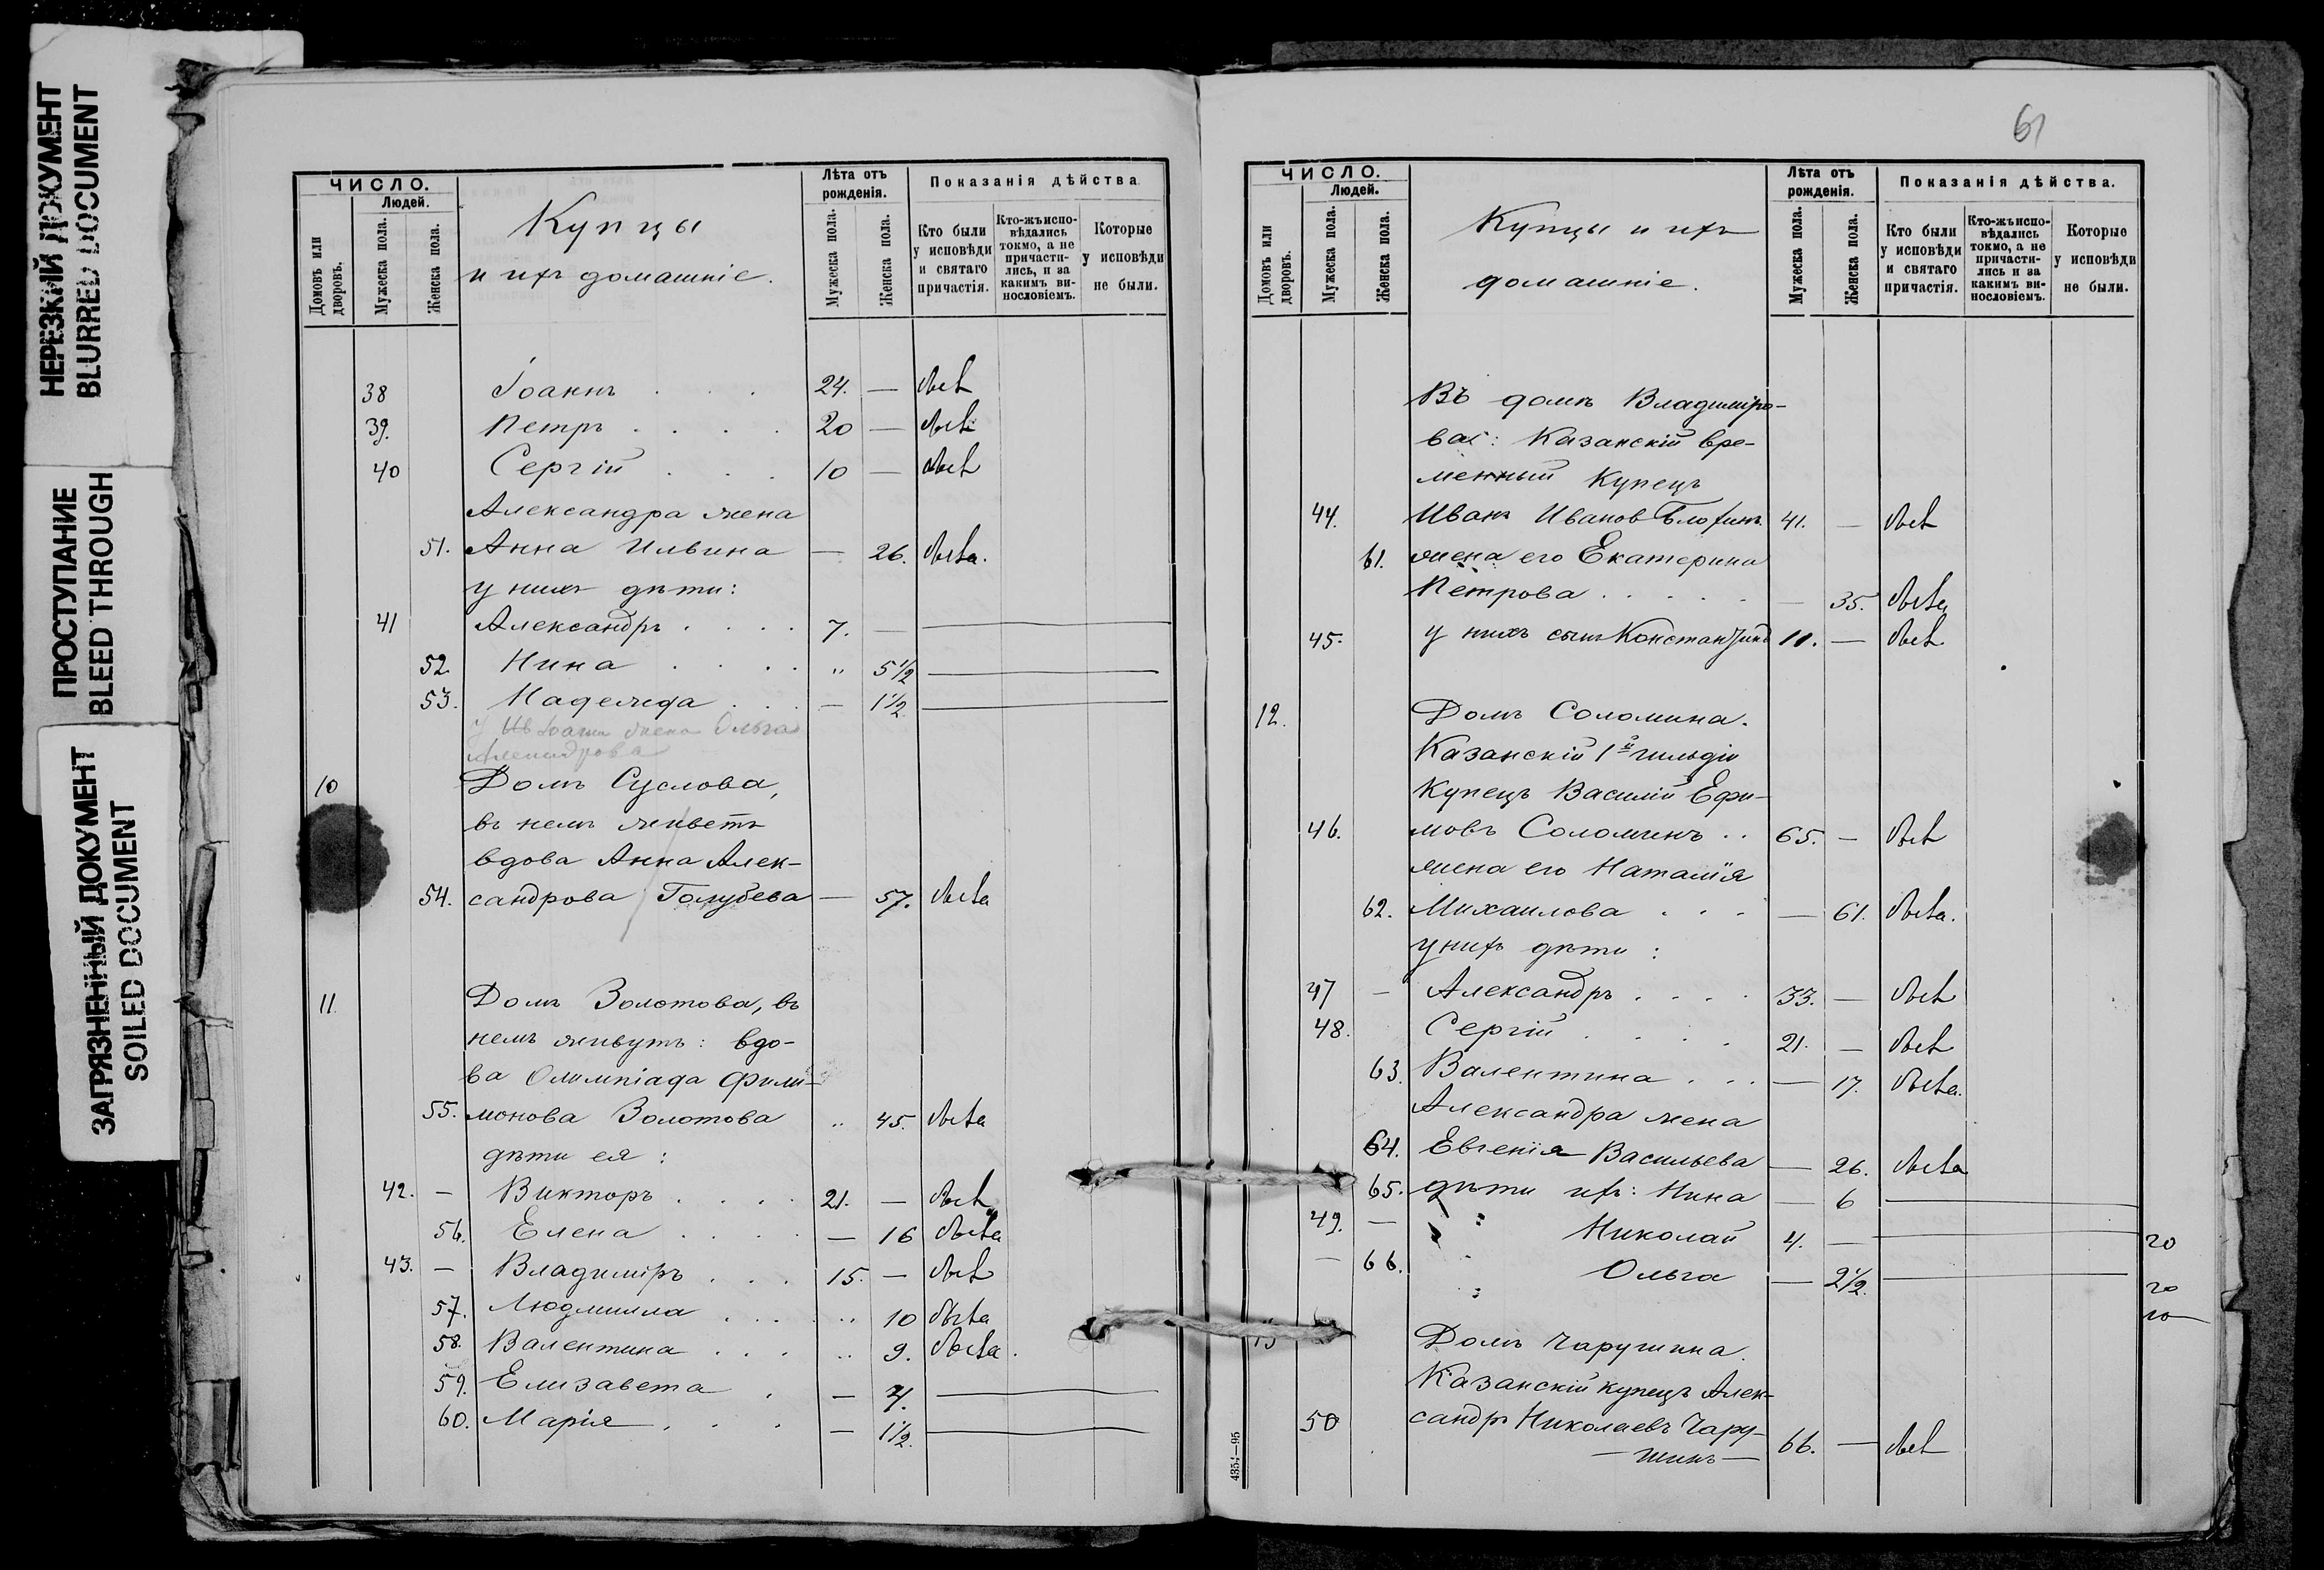 НЕРЕЗКИЙ ДОКУМЕНТ
BLURRED DOCUMENT
ПРОСТУПАНИЕ
BLEED THROUGH
ЗАГРЯЗНЕННЫЙ ДОКУМЕНТ
SOILED DOCUMENT
ЧИСЛО.
Людей.
Домовъ или дворовъ.
Мужеска пола.
Женска пола.
Купцы
и ихъ домашніе.
Лѣта отъ рожденія.
Мужеска пола.
Женска пола.
Показанія дѣйства
Кто были у исповѣди и святаго причастія.
Кто-жъ исповѣдались токмо, а не причастились, и за какимъ винословіемъ.
Которые у исповѣди не были.
38 Іоаннъ . . . 24. — былъ
39. Петръ . . . . 20 — былъ
40 Сергій . . . 10 — былъ
Александра жена
51. Анна Ильина — 26. была.
у нихъ дѣти:
41 Александръ . . . . 7. —
52. Нина . . . . " 5 1/2
53. Надежда . . . — 1 1/2
жена Ольга
10 Домъ Суслова,
въ немъ живетъ
вдова Анна Алек-
54. сандрова Голубева — 57. была
11 Домъ Золотова, въ
немъ живутъ: вдо-
ва Олимпіада Фили-
55. монова Золотова " 45. была
дѣти ея:
42. — Викторъ . . . . 21. — былъ
56. Елена . . . . — 16 была
43. — Владиміръ . . . 15. — былъ
57. Людмилла . . . . " 10 была
58. Валентина . . . . " 9. была.
59. Елизавета . — 4.
60. Марія . . . — 1 1/2.
61
ЧИСЛО.
Людей.
Домовъ или дворовъ.
Мужеска пола.
Женска пола.
Купцы и ихъ
домашніе.
Лѣта отъ рожденія.
Мужеска пола.
Женска пола.
Показанія дѣйства.
Кто были у исповѣди и святаго причастія.
Кто-жъ исповѣдались токмо, а не причастились и за какимъ винословіемъ.
Которые у исповѣди не были.
Въ домѣ Владиміро-
вас: Казанскій вре-
менный купецъ
44. Иванъ Иванов 41. — былъ
61. жена его Екатерина
Петрова . . . . . — 35. была
45. у нихъ сынъ Константинъ 11. — былъ
12. Домъ Соломина.
Казанскій 1й гильдіи
купецъ Василій Ефи-
46. мовъ Соломинъ . . 65. — былъ
жена его Наталія
62. Михаилова . . . — 61. была.
у нихъ дѣти:
47 — Александръ . . . . 33. — былъ
48. Сергій . . . . 21. — былъ
63. Валентина . . . — 17. была.
Александра жена
64. Евгенія Васильева — 26. была
65. дѣти ихъ: Нина — 6
49. — " Николай 4. —
— 66. " Ольга — 2 1/2.
13 Домъ Чарушина.
Казанскій купецъ Алек-
50 сандръ Николаевъ Чару-
—шинъ— 66. — былъ
4354—95